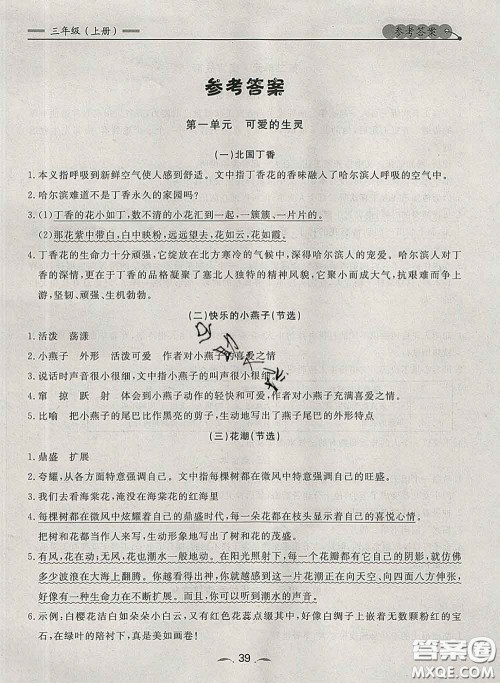 三年级（上册）
参考答案
参考答案
第一单元　可爱的生灵
（一）北国丁香
1. 本义指呼吸到新鲜空气使人感到舒适。文中指丁香花的香味融入了哈尔滨人呼吸的空气中。
2. 哈尔滨难道不是丁香永久的家园吗？
3. （1）丁香的花小如丁，数不清的小花汇到一起，一簇簇、一片片的。
（2）那花紫中带白，白中映粉，远远望去，花如云，花如霞。
4. 丁香花的生命力十分顽强，它绽放在北方寒冷的气候中，深得哈尔滨人的宠爱。哈尔滨人对丁
香的深情，更在丁香的品格凝聚了塞北人独特的精神风貌，它之小而成大气，抗艰难而增异彩，
坚韧、顽强、生机勃勃。
（二）快乐的小燕子（节选）
1. 活泼　荡漾
2. 小燕子　外形　活泼可爱　作者对小燕子的喜爱之情
3. 说话时声音很小很细。文中指小燕子的声音很小很细。
4. 窜　掠　跃　射　体会到小燕子动作的轻快和可爱。作者对小燕子充满喜爱之情。
5. 比喻　把小燕子的尾巴比作黑亮的剪子，生动地写出了燕子尾巴的外形特点
（三）花潮（节选）
1. 鼎盛　扩展
2. 夸耀，从各方面特意强调自己。文中指每棵树都在特意强调自己开花的旺盛。
3. 我们去看海棠花，淹没在海棠花的红海里
4. 每棵树都在微风中炫耀着自己的鼎盛时代，每一朵花都在枝头显示着自己的喜悦心情。
把树和花当作人来写，生动地写出了树与花的茂盛。
5. 有风，花在动；无风，花也潮水一般地动。在阳光照射下，每一个花瓣都有它自己的阴影，就仿佛
多少波浪在大海上翻腾。你越看得出神，你就越感到这一片花潮正在向天空、向四面八方伸张，
好像有一种生命力在不断扩展。而且，你可以听到潮水的声音。
6. 示例：白樱花洁白如朵朵小白云，又有红色花蕊点缀其中，好像白绸子上嵌着无数颗粉红的宝
石，在绿叶的陪衬下，真是美如画卷！
39
作业
答案圈
MXQE.COM